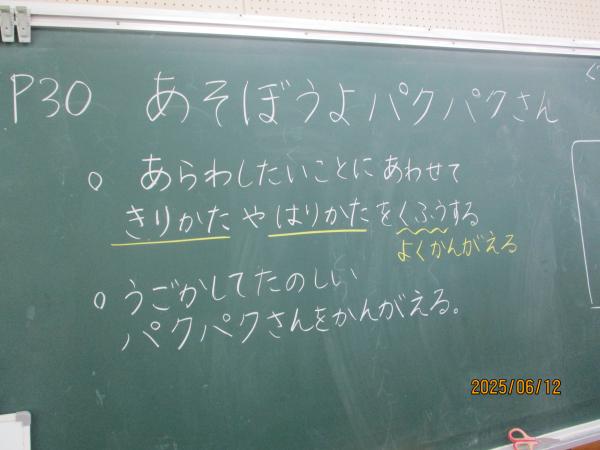 P30 あそぼうよパクパクさん
○ あらわしたいことにあわせて
きりかたやはりかたをくふうする
よくかんがえる
○ うごかしてたのしい
パクパクさんをかんがえる。
2025/06/12